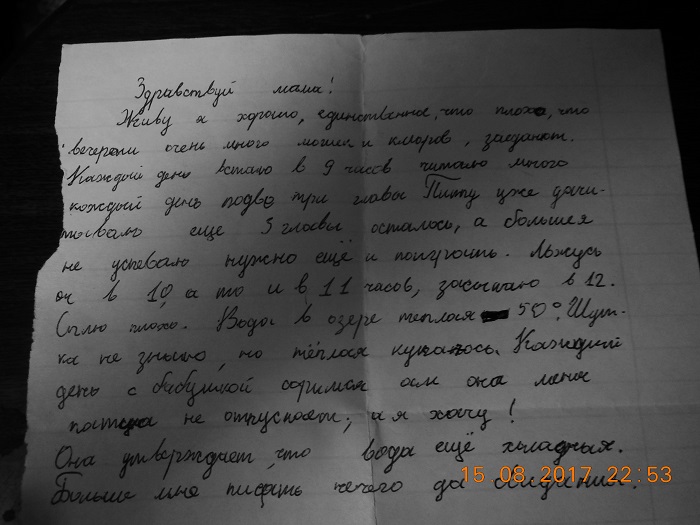 Здравствуй мама!
Живу я хорошо, единственное, что плохо, что
вечерами очень много мошки и кморов, заедают.
Каждый день встаю в 9 часов читаю много
каждый день подва три главы Пиппу уже дачи-
тываю еще 5 главы осталось, а больше
не успеваю нужно ещё и поиграть. Льжусь
в 10, а то и в 11 часов, засыпаю в 12.
Сплю плохо. Вода в озере теплая 50°. Шут-
ка не знаю, но тёплая купалось. Каждый
день с бабушкой соримся она меня
не отпускает, а я хочу!
Она утверждает, что вода ещё хладная.
Больше мне писать нечего да свидиния.
15.08.2017 22:53